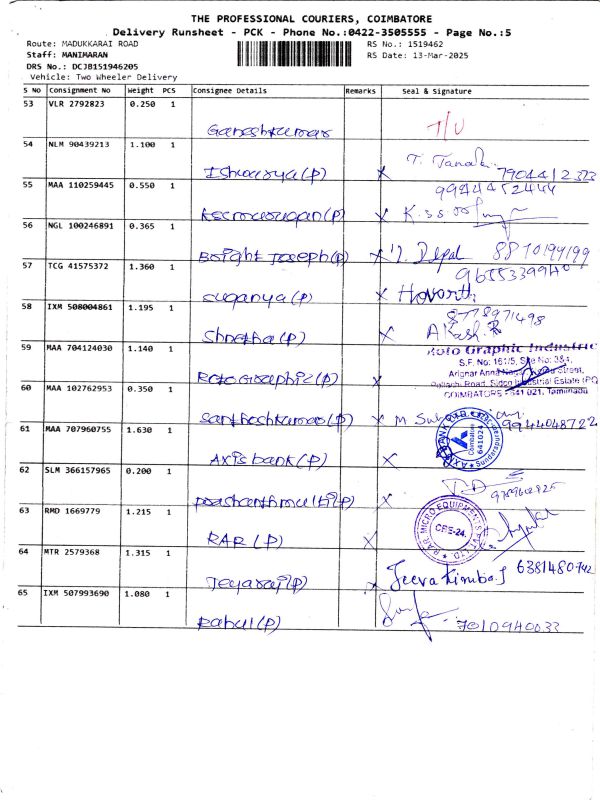 THE PROFESSIONAL COURIERS, COIMBATORE
Delivery Runsheet - PCK - Phone No.:0422-3505555 - Page No.:5
Route: MADUKKARAI ROAD RS No.: 1519462
Staff: MANIMARAN RS Date: 13-Mar-2025
DRS No.: DCJB151946205
Vehicle: Two Wheeler Delivery
S No Consignment No Weight PCS Consignee Details Remarks Seal & Signature
53 VLR 2792823 0.250 1
Ganeshkumar T/U
54 NLM 90439213 1.100 1
Ishwarya(p) X T. Janaki 7904412323
55 MAA 110259445 0.550 1 9944452444
(p) X K.S.S
56 NGL 100246891 0.365 1
Bright Joseph(p) X Depal
57 TCG 41575372 1.360 1
Suganya(p) X
58 IXM 508004861 1.195 1 8778971498
(p) X Akash.R
59 MAA 704124030 1.140 1 Roto Graphic Industries
S.F. No: 161/5, Site No: 3&4,
Arignar Anna Nagar, Street,
Rotographic(p) X Pollachi Road, Sidco Industrial Estate (PO)
60 MAA 102762953 0.350 1 COIMBATORE - 641 021. Tamilnadu
Santhoshkumar(p) X M 9944048722
61 MAA 707960755 1.630 1 AXIS BANK LTD
Coimbatore 641024
Sundarapuram
Axis bank(p) X
62 SLM 366157965 0.200 1
(p) X
63 RMD 1669779 1.215 1 RAR MICRO EQUIPMENTS PVT. LTD.
CBE-24.
RAR (p) X
64 MTR 2579368 1.315 1
Jeyaraj(p) X 6381480742
65 IXM 507993690 1.080 1
Rahul(p) 7010940033